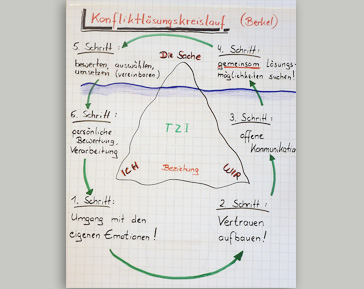 Konfliktlösungskreislauf (Berkel)
5. Schritt:
bewerten, auswählen,
umsetzen (vereinbaren)
Die Sache
4. Schritt:
gemeinsam Lösungs-
möglichkeiten suchen!
6. Schritt:
persönliche
Bewertung,
Verarbeitung
TZI
3. Schritt:
offene
Kommunikation
ICH
Beziehung
WIR
1. Schritt:
Umgang mit den
eigenen Emotionen!
2. Schritt:
Vertrauen
aufbauen!